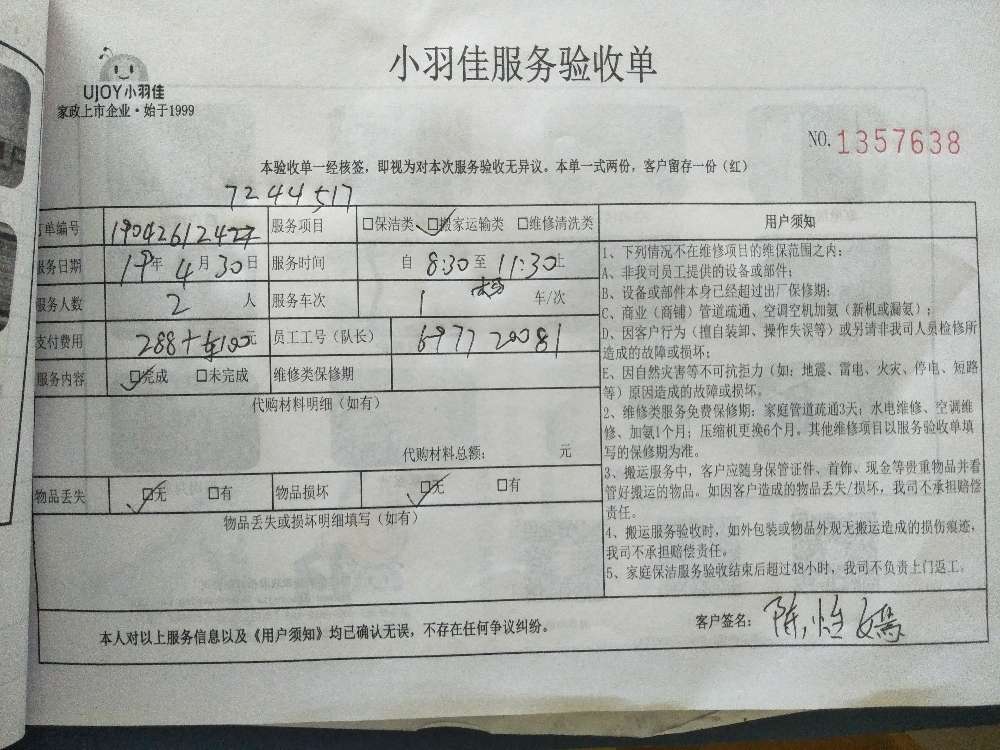 小羽佳服务验收单
UJOY小羽佳
家政上市企业·始于1999
NO. 1357638
本验收单一经核签，即视为对本次服务验收无异议。本单一式两份，客户留存一份（红）
7244517
单编号 19042612427 服务项目 □保洁类 □搬家运输类 □维修清洗类
服务日期 19年4月30日 服务时间 自 8:30 至 11:30 止
服务人数 2 人 服务车次 1 车/次
支付费用 288+ 100元 员工工号（队长） 6977 20081
服务内容 □完成 □未完成 维修类保修期
代购材料明细（如有）
代购材料总额： 元
物品丢失 □无 □有 物品损坏 □无 □有
物品丢失或损坏明细填写（如有）
用户须知
1、下列情况不在维修项目的维保范围之内：
A、非我司员工提供的设备或部件；
B、设备或部件本身已经超过出厂保修期；
C、商业（商铺）管道疏通、空调空机加氨（新机或漏氨）；
D、因客户行为（擅自装卸、操作失误等）或另请非我司人员检修所
造成的故障或损坏；
E、因自然灾害等不可抗拒力（如：地震、雷电、火灾、停电、短路
等）原因造成的故障或损坏。
2、维修类服务免费保修期：家庭管道疏通3天；水电维修、空调维
修、加氨1个月；压缩机更换6个月。其他维修项目以服务验收单填
写的保修期为准。
3、搬运服务中，客户应随身保管证件、首饰、现金等贵重物品并看
管好搬运的物品。如因客户造成的物品丢失/损坏，我司不承担赔偿
责任。
4、搬运服务验收时，如外包装或物品外观无搬运造成的损伤痕迹，
我司不承担赔偿责任。
5、家庭保洁服务验收结束后超过48小时，我司不负责上门返工。
本人对以上服务信息以及《用户须知》均已确认无误，不存在任何争议纠纷。
客户签名： 陈怡嫣